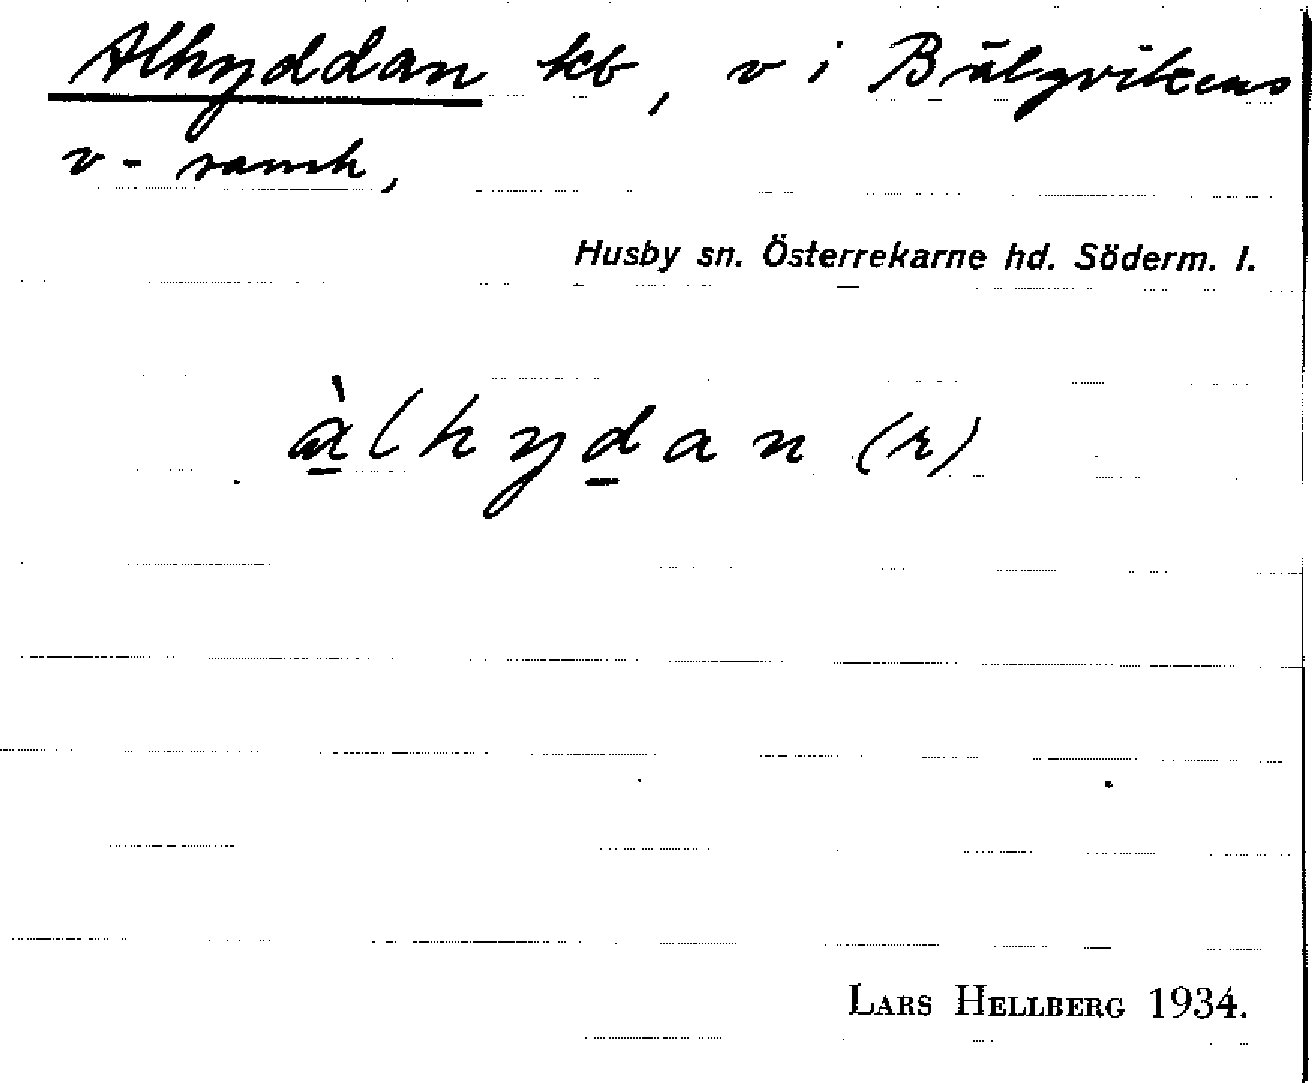 Alhyddan kb, v i Bälgvikens
v-samh,
Husby sn. Österrekarne hd. Söderm. l.
àlhydan (r)
LARS HELLBERG 1934.